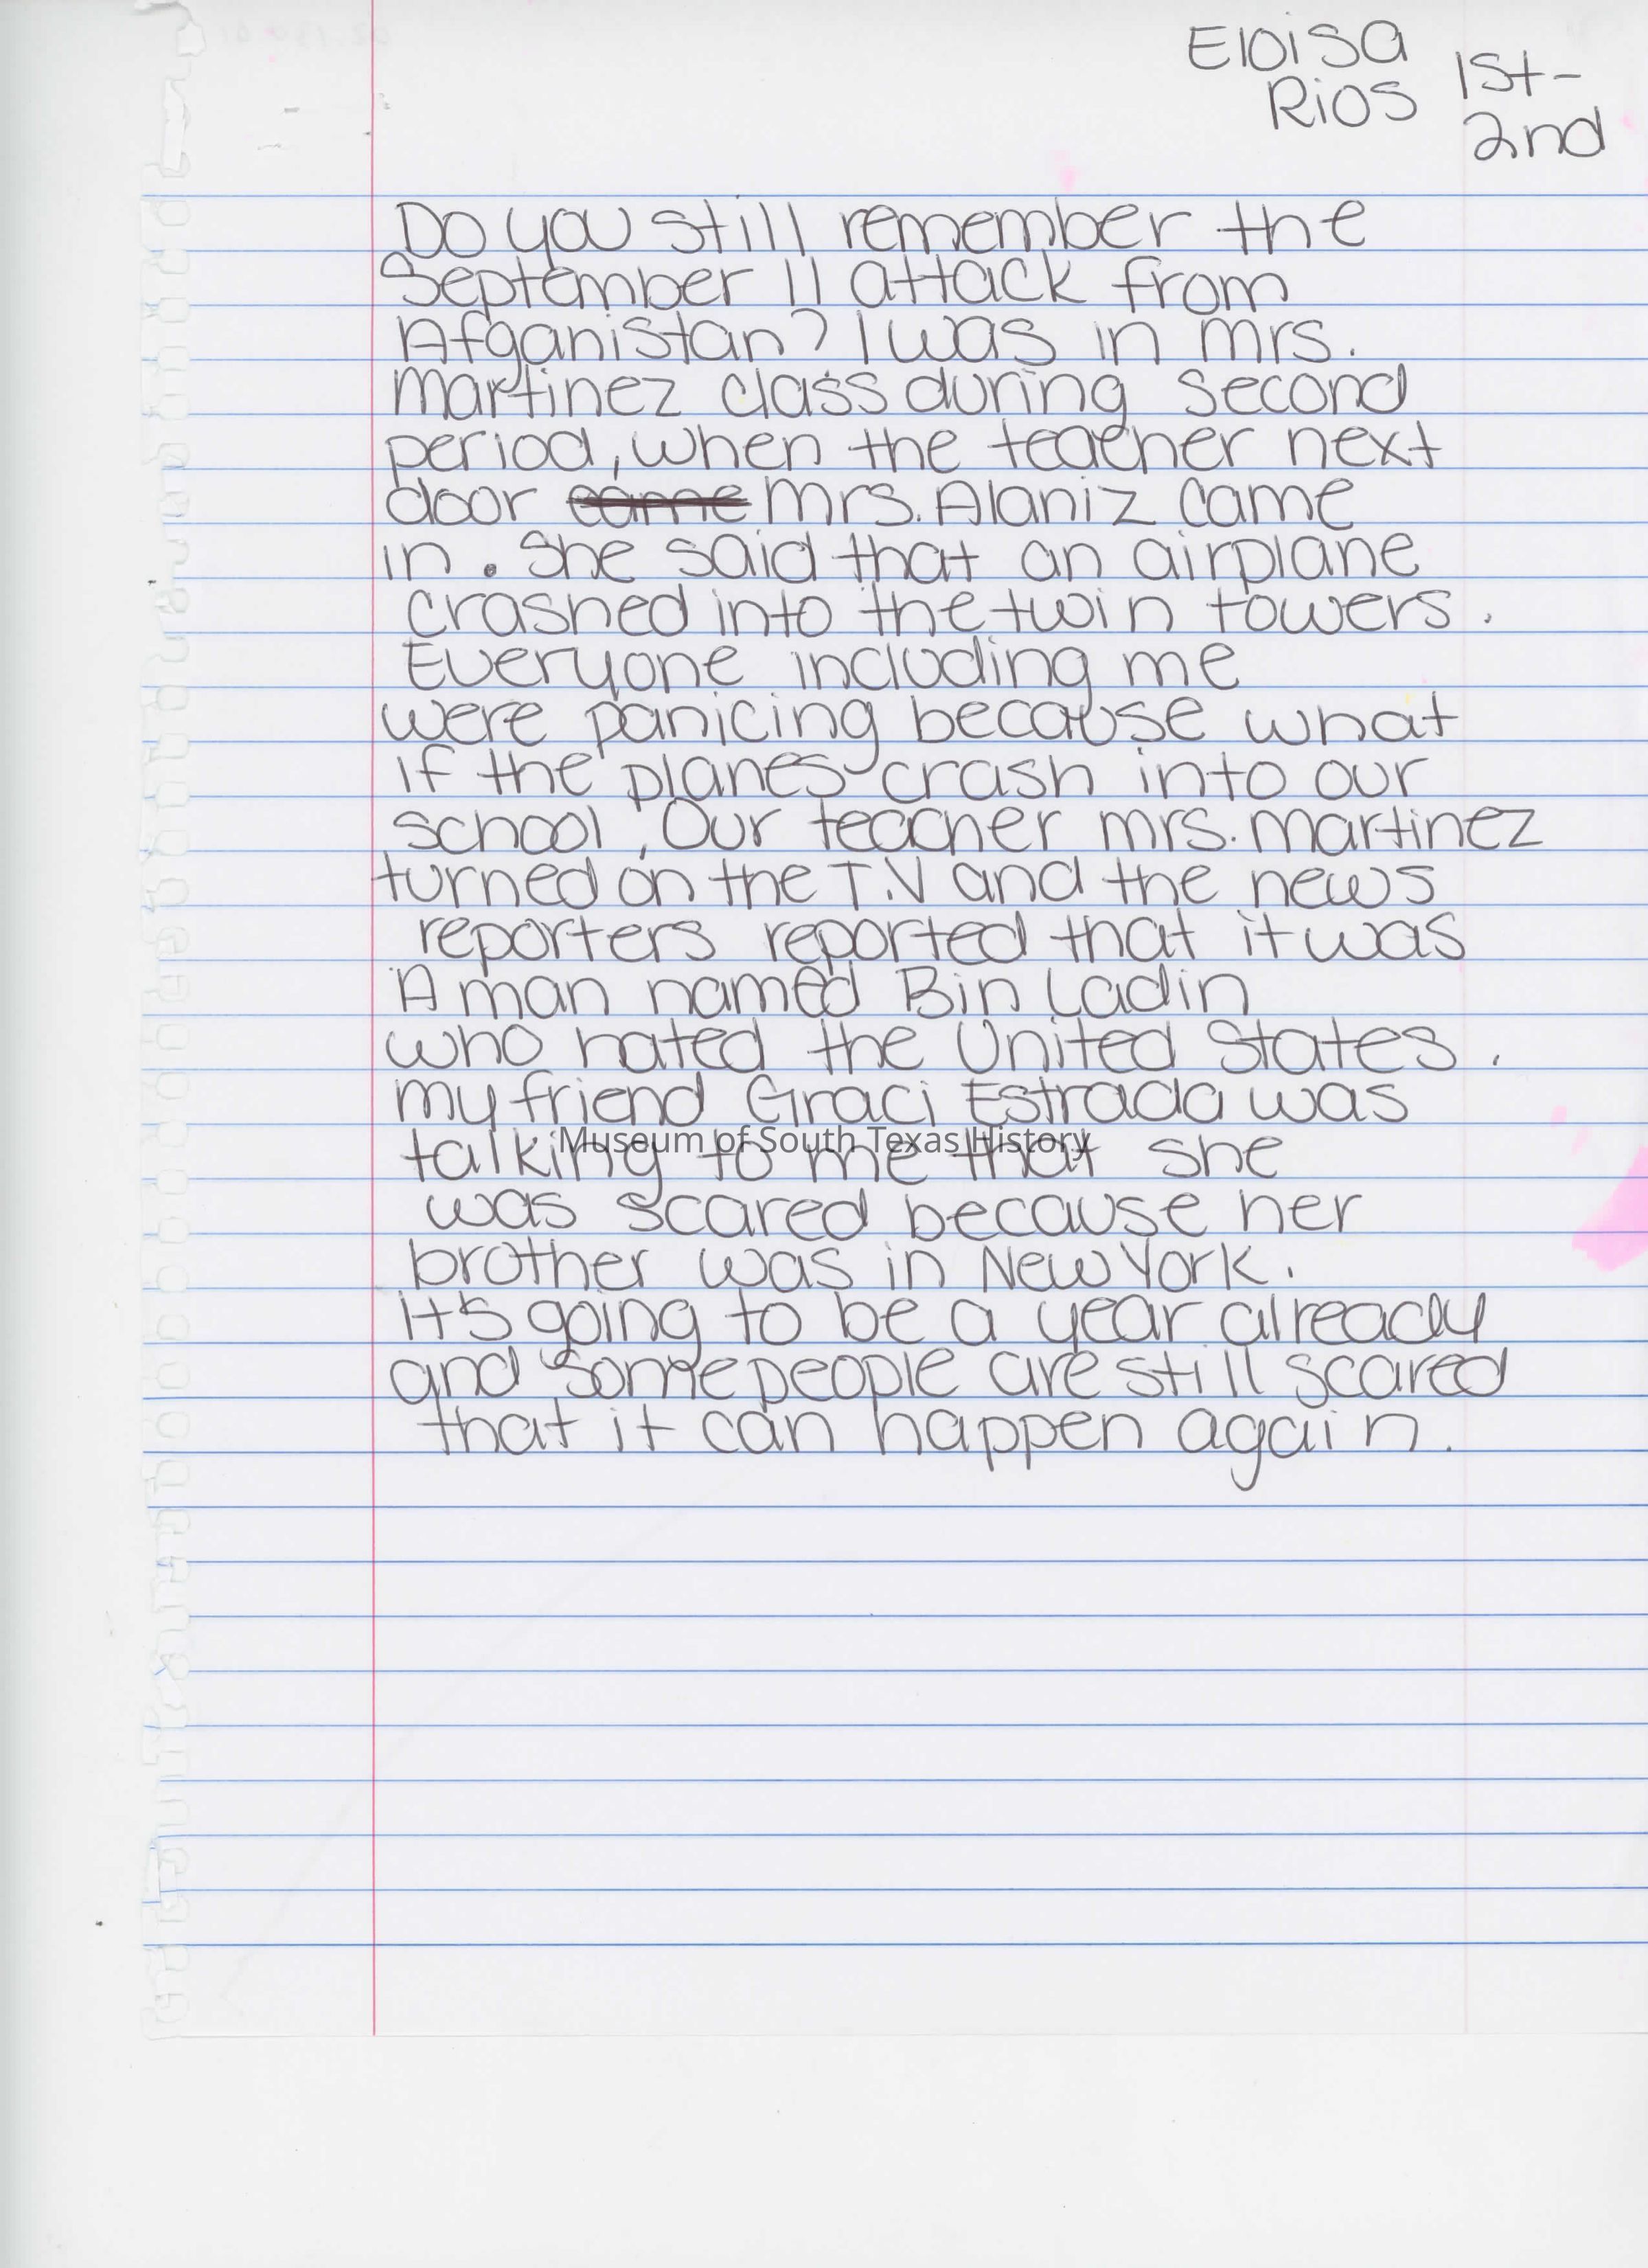 Eloisa
Rios 1st-
2nd
Do you still remember the
September 11 attack from
Afganistan? I was in mrs.
Martinez class during second
period, when the teacher next
door came Mrs. Alaniz came
in. She said that an airplane
crashed into the twin towers.
Everyone including me
were panicing because what
if the planes crash into our
school, Our teacher mrs. Martinez
turned on the T.V and the news
reporters reported that it was
A man named Bin Ladin
who hated the United States.
my friend Graci Estrada was
talking to me that she
Museum of South Texas History
was scared because her
brother was in New York.
It's going to be a year already
and some people are still scared
that it can happen again.